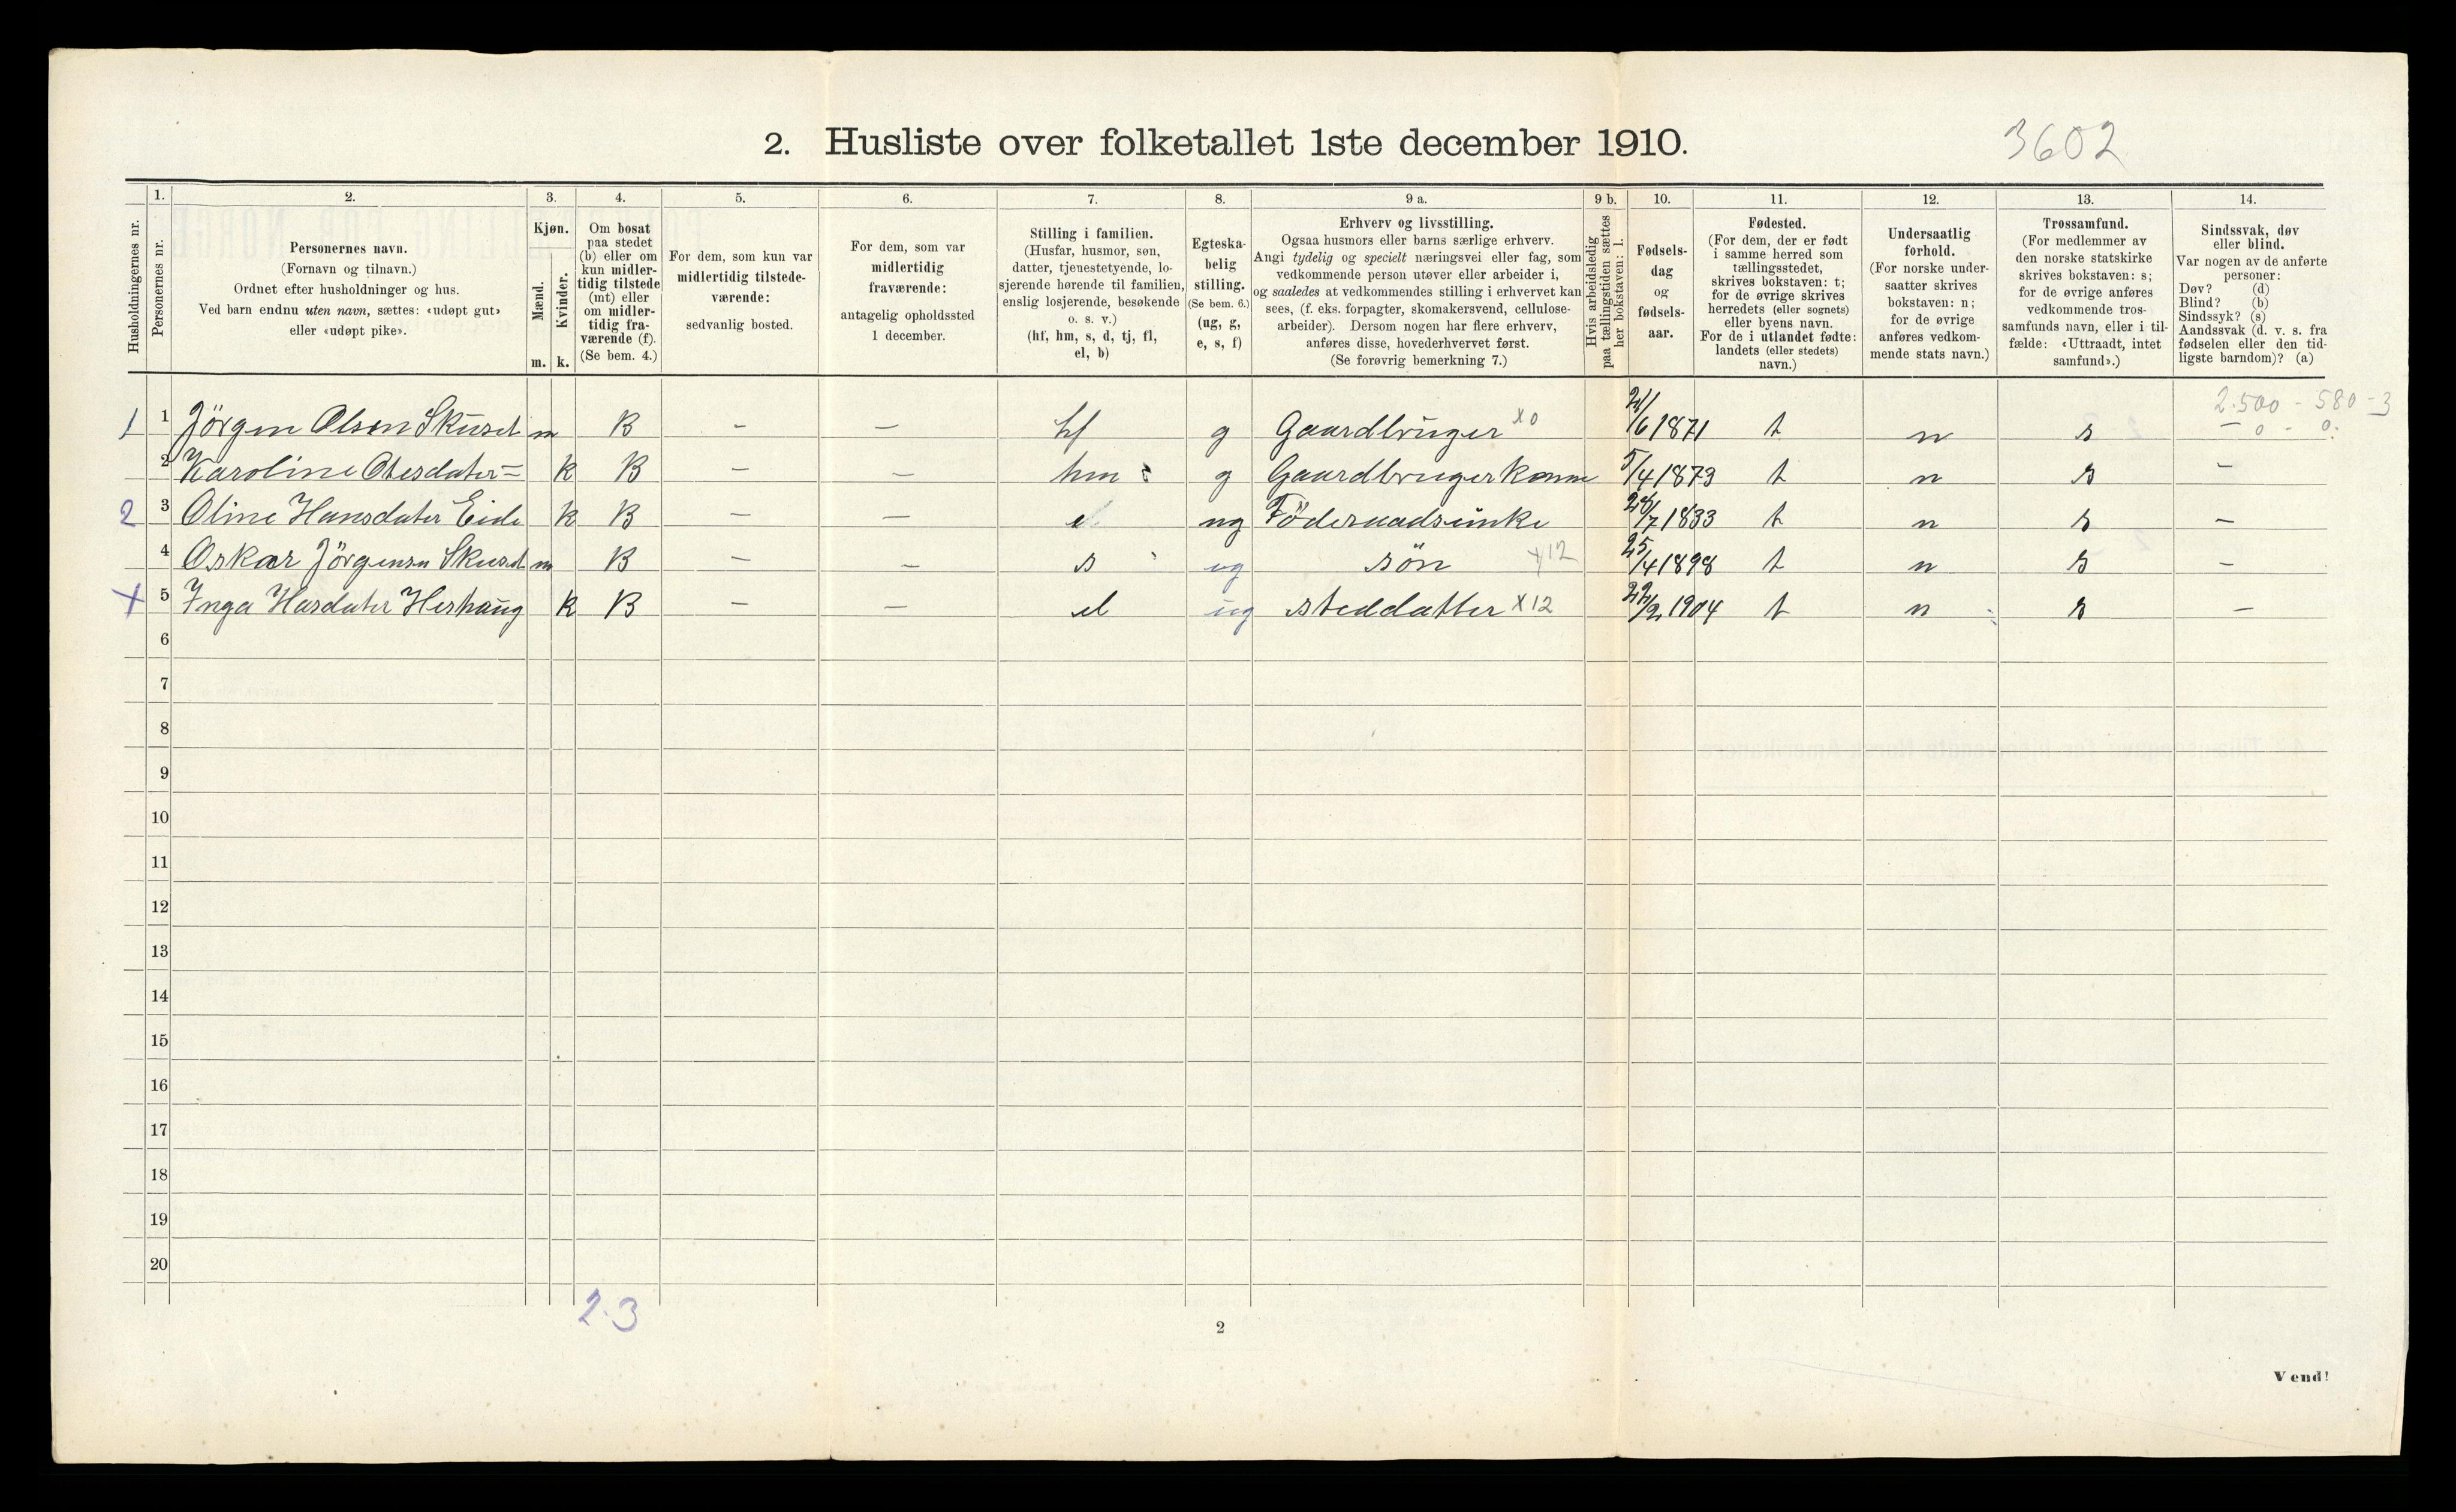 2. Husliste over folketallet 1ste december 1910.
3602
Husholdningernes nr.
1.
Personernes nr.
2.
Personernes navn.
(Fornavn og tilnavn.)
Ordnet efter husholdninger og hus.
Ved barn endnu uten navn, sættes: «udøpt gut»
eller «udøpt pike».
3.
Kjøn.
Mænd.
Kvinder.
m.
k.
4.
Om bosat
paa stedet
(b) eller om
kun midler-
tidig tilstede
(mt) eller
om midler-
tidig fra-
værende (f).
(Se bem. 4.)
5.
For dem, som kun var
midlertidig tilstede-
værende:
sedvanlig bosted.
6.
For dem, som var
midlertidig
fraværende:
antagelig opholdssted
1 december.
7.
Stilling i familien.
(Husfar, husmor, søn,
datter, tjenestetyende, lo-
sjerende hørende til familien,
enslig losjerende, besøkende
o. s. v.)
(hf, hm, s, d, tj, fl,
el, b)
8.
Egteska-
belig
stilling.
(Se bem. 6.)
(ug, g,
e, s, f)
9 a.
Erhverv og livsstilling.
Ogsaa husmors eller barns særlige erhverv.
Angi tydelig og specielt næringsvei eller fag, som
vedkommende person utøver eller arbeider i,
og saaledes at vedkommendes stilling i erhvervet kan
sees, (f. eks. forpagter, skomakersvend, cellulose-
arbeider). Dersom nogen har flere erhverv,
anføres disse, hovederhvervet først.
(Se forøvrig bemerkning 7.)
9 b.
Hvis arbeidsledig
paa tællingstiden sættes
her bokstaven: l.
10.
Fødsels-
dag
og
fødsels-
aar.
11.
Fødested.
(For dem, der er født
i samme herred som
tællingsstedet,
skrives bokstaven: t;
for de øvrige skrives
herredets (eller sognets)
eller byens navn.
For de i utlandet fødte:
landets (eller stedets)
navn.)
12.
Undersaatlig
forhold.
(For norske under-
saatter skrives
bokstaven: n;
for de øvrige
anføres vedkom-
mende stats navn.)
13.
Trossamfund.
(For medlemmer av
den norske statskirke
skrives bokstaven: s;
for de øvrige anføres
vedkommende tros-
samfunds navn, eller i til-
fælde: «Uttraadt, intet
samfund».)
14.
Sindssvak, døv
eller blind.
Var nogen av de anførte
personer:
Døv? (d)
Blind? (b)
Sindssyk? (s)
Aandssvak (d. v. s. fra
fødselen eller den tid-
ligste barndom)? (a)
2.500 - 580 - 3
1 1 Jörgen Olsen Skuset m B - - hf g Gaardbruger x0 /6 1871 t n s - 0 - 0.
2 Karoline Olesdater = k B - - hm g Gaardbrugerkonne 5/4 1873 t n s -
2 3 Oline Hansdater Eide k B - - el ug Föderaadsenke /7 1833 t n s -
4 Oskar Jörgensen Skuset m B - - s ug sön x12 25/4 1898 t n s -
x 5 Inga Hasdater Heshaug k B - - el ug steddatter x12 22/2 1904 t n s -
6
7
8
9
10
11
12
13
14
15
16
17
18
19
20
2.3
2
Vend!